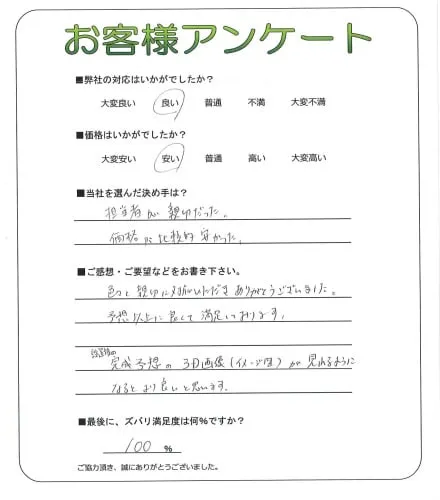 お客様アンケート
■弊社の対応はいかがでしたか？
大変良い 良い 普通 不満 大変不満
■価格はいかがでしたか？
大変安い 安い 普通 高い 大変高い
■当社を選んだ決め手は？
担当者が 親切だった。
価格が比較的 安かった。
■ご感想・ご要望などをお書き下さい。
色々と 親切に対応いただき ありがとうございました。
予想以上に 良くて 満足しております。
完成予想の 3D画像（イメージ図）が 見れるように
なると より良いと思います。
■最後に、ズバリ満足度は何％ですか？
100 ％
ご協力頂き、誠にありがとうございました。